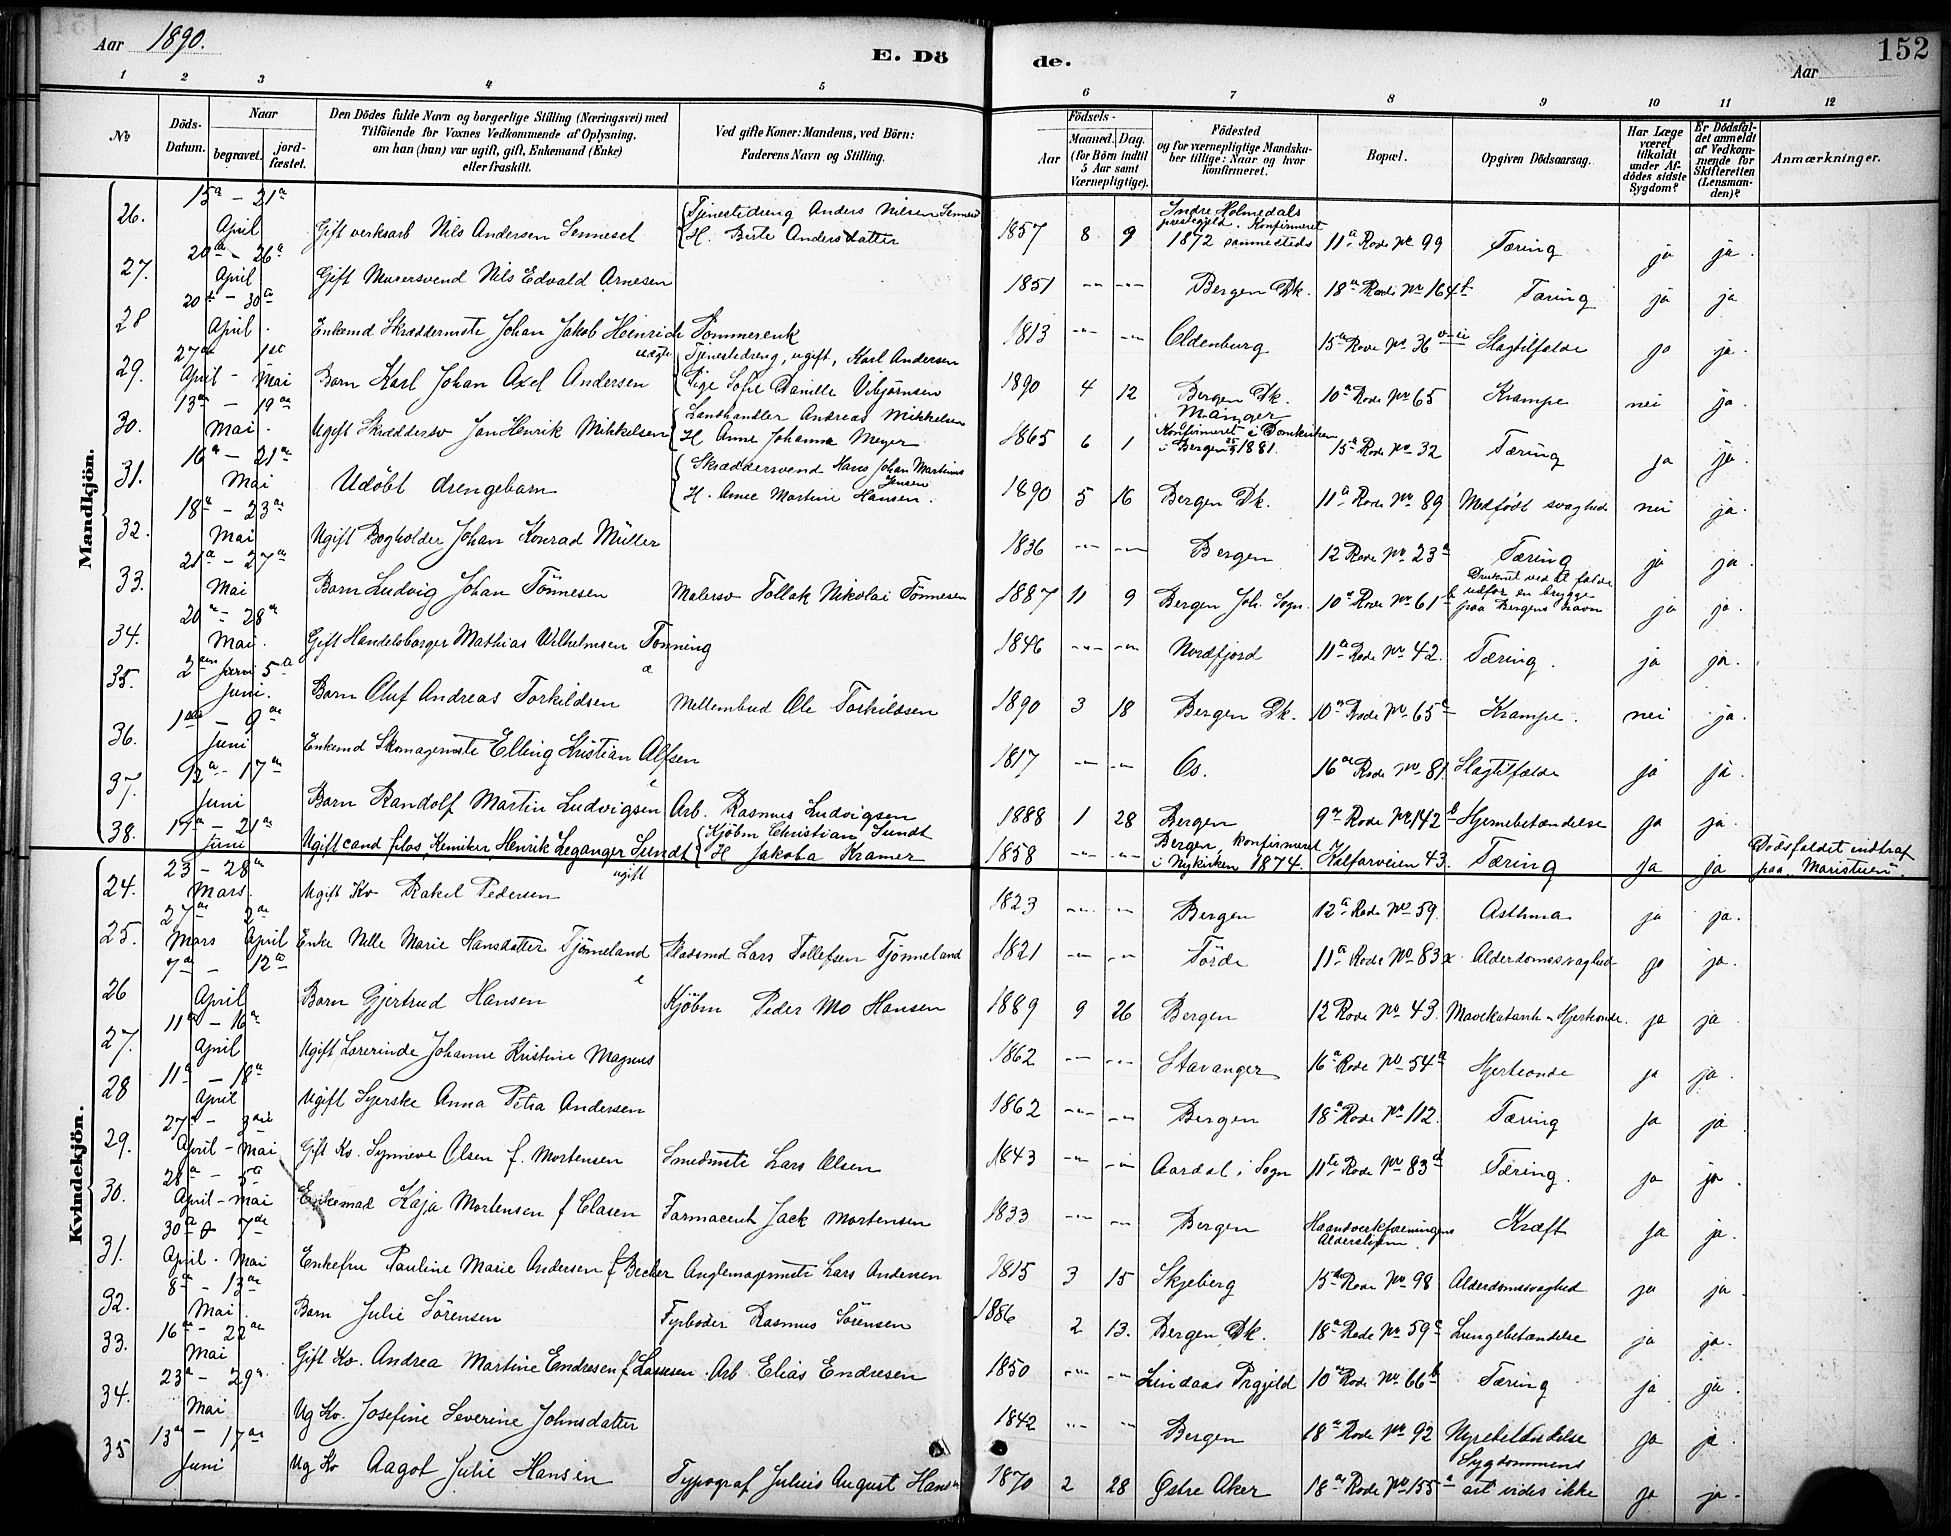 Aar 1890.
E. Dö de.
Aar
152
1 2 3 4 5 6 7 8 9 10 11 12
No
Döds-Datum.
Naar
begravet.
jord-fæstet.
Den Dödes fulde Navn og borgerlige Stilling (Næringsvei) med
Tilföiende for Voxnes Vedkommende af Oplysning,
om han (hun) var ugift, gift, Enkemand (Enke)
eller fraskilt.
Ved gifte Koner: Mandens, ved Börn:
Faderens Navn og Stilling.
Födsels-
Aar
Maaned. Dag.
(for Börn indtil
5 Aar samt
Værnepligtige).
Födested
og for værnepligtige Mandska-
ber tillige: Naar og hvor
konfirmeret.
Bopæl.
Opgiven Dödsaarsag.
Har Læge
været
tilkaldt
under Af-
dödes sidste
Sygdom?
Er Dödsfal-
det anmeldt
af Vedkom-
mende for
Skifteretten
(Lensman-
den)?
Anmærkninger.
Mandkjön.
26. 15a – 21a April Gift verksarb Nils Andersen Sennesel Tjenestedreng Anders Nilsen H. Berte Andersdatter 1857 8 9 Indre Holmedals prestegjeld. Konfirmeret 1872 sammesteds 11a Rode No 99 Tæring ja ja.
27. 20a – 26a April Gift Murersvend Nils Edvald Arnesen 1851 -"- -"- Bergen Dk. 18a Rode No 164 Tæring ja ja
28 20a – 30te April. Enkemd Skræddermste Johan Jakob Heinrich Pommerenk 1813 -"- -"- Oldenburg 15a Rode No 36 Slagtilfælde ja ja.
29. 27de April – 1ste Mai Barn Karl Johan Axel Andersen uægte Tjenestedreng, ugift, Karl Andersen Pige Sofie Danille Vibjørnsen 1890 4 12 Bergen Dk. 10a Rode No 65 Krampe nei ja.
30. 13de – 19de Mai. Ugift Skræddersv Jan Henrik Mikkelsen Landhandler Andreas Mikkelsen H Anne Johanna Meyer 1865 6 1 Manger Konfirmeret i Domkirken i Bergen 1881. 15a Rode No 32 Tæring ja ja.
31. 16a – 21de Mai Udøbt drengebarn Skræddersvend Hans Johan Martinus Jensen H. Anne Martine Hansen. 1890 5 16 Bergen Dk. 11a Rode No 89 Medfødt svaghed nei ja.
32. 18a – 23de Mai Ugift Bogholder Johan Konrad Müller 1836 -"- -"- Bergen 12 Rode No 23a Tæring ja ja.
33. 21a – 27a Mai Barn Ludvig Johan Tönnesen Malersv Tollak Nikolai Tönnesen 1887 11 9 Bergen Joh. Sogn. 10a Rode No 61b Druknet ved at falde udfor en brygge paa Bergens havn ja ja.
34. 20a – 28a Mai. Gift Handelsborger Mathias Wilhelmsen Tonning 1846 -"- -"- Nordfjord 11a Rode No 42. Tæring. ja ja.
35. 2den – 5a Juni. Barn Oluf Andreas Torkildsen Mellembud Ole Torkildsen 1890 3 18 Bergen Dk. 10a Rode No 65a Krampe. nei ja.
36. 1ste – 9de Juni Enkemd Skomagermste Elling Kristian Alfsen 1817 -"- -"- Os. 16a Rode No 81. Slagtilfælde ja ja.
37. 12a – 17de Juni Barn Randolf Martin Ludvigsen Arb. Rasmus Ludvigsen 1888 1 28 Bergen 9a Rode No 142b Hjernebetændelse ja ja.
38. 17a – 21de Juni Ugift cand filos, Kemiker, Henrik Leganger Sundt Kjöbm Christian Sundt H Jakoba Kramer 1858 -"- -"- Bergen, konfirmeret i Nykirken 1874. Kalfarveien 43. Tæring ja ja Dödsfaldet indtraf paa "Maristuen".
Kvindekjön.
24. 23 – 28a Mars. Ugift Kv Rakel Pedersen ugift 1823 -"- -"- Bergen 12a Rode No 59. Asthma ja ja.
25. 27de Mars 2de April Enke Nille Marie Hansdatter Tjønneland Lars Tollefsen Tjønneland 1821 -"- -"- Förde 11a Rode No 83x. Alderdomssvaghed ja ja.
26 7a – 12te April Barn Gjertrud Hansen Kjöbm Peder Mo Hansen 1889 9 26 Bergen 12 Rode No 43. Mavekatarrh – Hjerteonde. ja ja
27. 11a – 16de April Ugift Lærerinde Johanne Kristine Magnus 1862 -"- -"- Stavanger 16a Rode No 54a Hjerteonde ja ja.
28 11a – 18a April Ugift Syerske Anna Petra Andersen 1862 -"- -"- Bergen 18a Rode No 112. Tæring ja ja
29. 27a – 3die April – Mai Gift Kv. Synneve Olsen f. Mortensen Smedmste Lars Olsen 1843 -"- -"- Aardal i Sogn 11te Rode No 83d Tæring. ja ja.
30. 28a – 5a April – Mai Enkemad Kaja Mortensen f Clasen Farmaceut Jack Mortensen 1833 -"- -"- Bergen Haandverkforeningens Aldershjem. Kræft ja ja.
31. 30a 7de April. Mai Enkefru Pauline Marie Andersen f Becker Anglemagermste Lars Andersen 1815 3 15 Skjeberg 15de Rode No 98 Alderdomssvaghed ja ja.
32. 8a – 13de Mai. Barn Julie Sörensen Fyrböder Rasmus Sörensen 1886 2 13. Bergen Dk. 18a Rode No 59a Lungebetændelse ja ja.
33. 16de – 22de Mai Gift Kv. Andrea Martine Endresen f Lassesen Arb Elias Endresen 1850 -"- -"- Lindaas Prgjeld 10a Rode No 66b Tæring ja ja.
34. 23a – 29a Mai Ug Kv. Josefine Severine Johnsdatter 1842 -"- -"- Bergen 18a Rode No 92 Nyrebetændelse ja ja
35 13a – 17de Juni Ug Kv Aagot Julie Hansen Typograf Julius August Hansen 1870 2 28 Østre Aker 18a Rode No 155a Sygdommens art vides ikke ja ja.